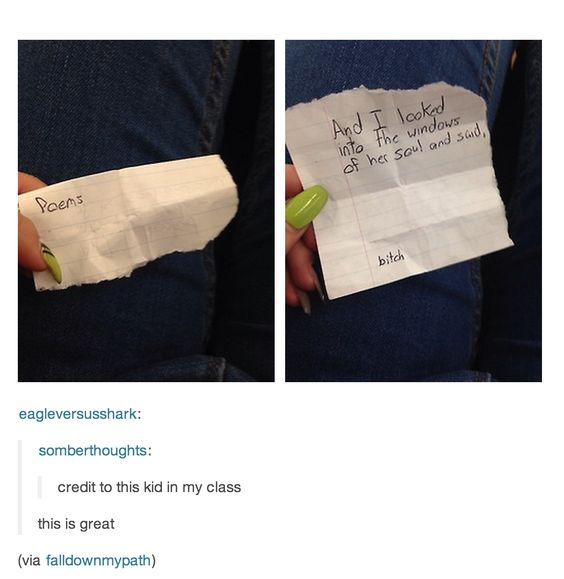 Poems
And I looked
into the windows
of her soul and said,
bitch
eagleversusshark:
somberthoughts:
credit to this kid in my class
this is great
(via falldownmypath)